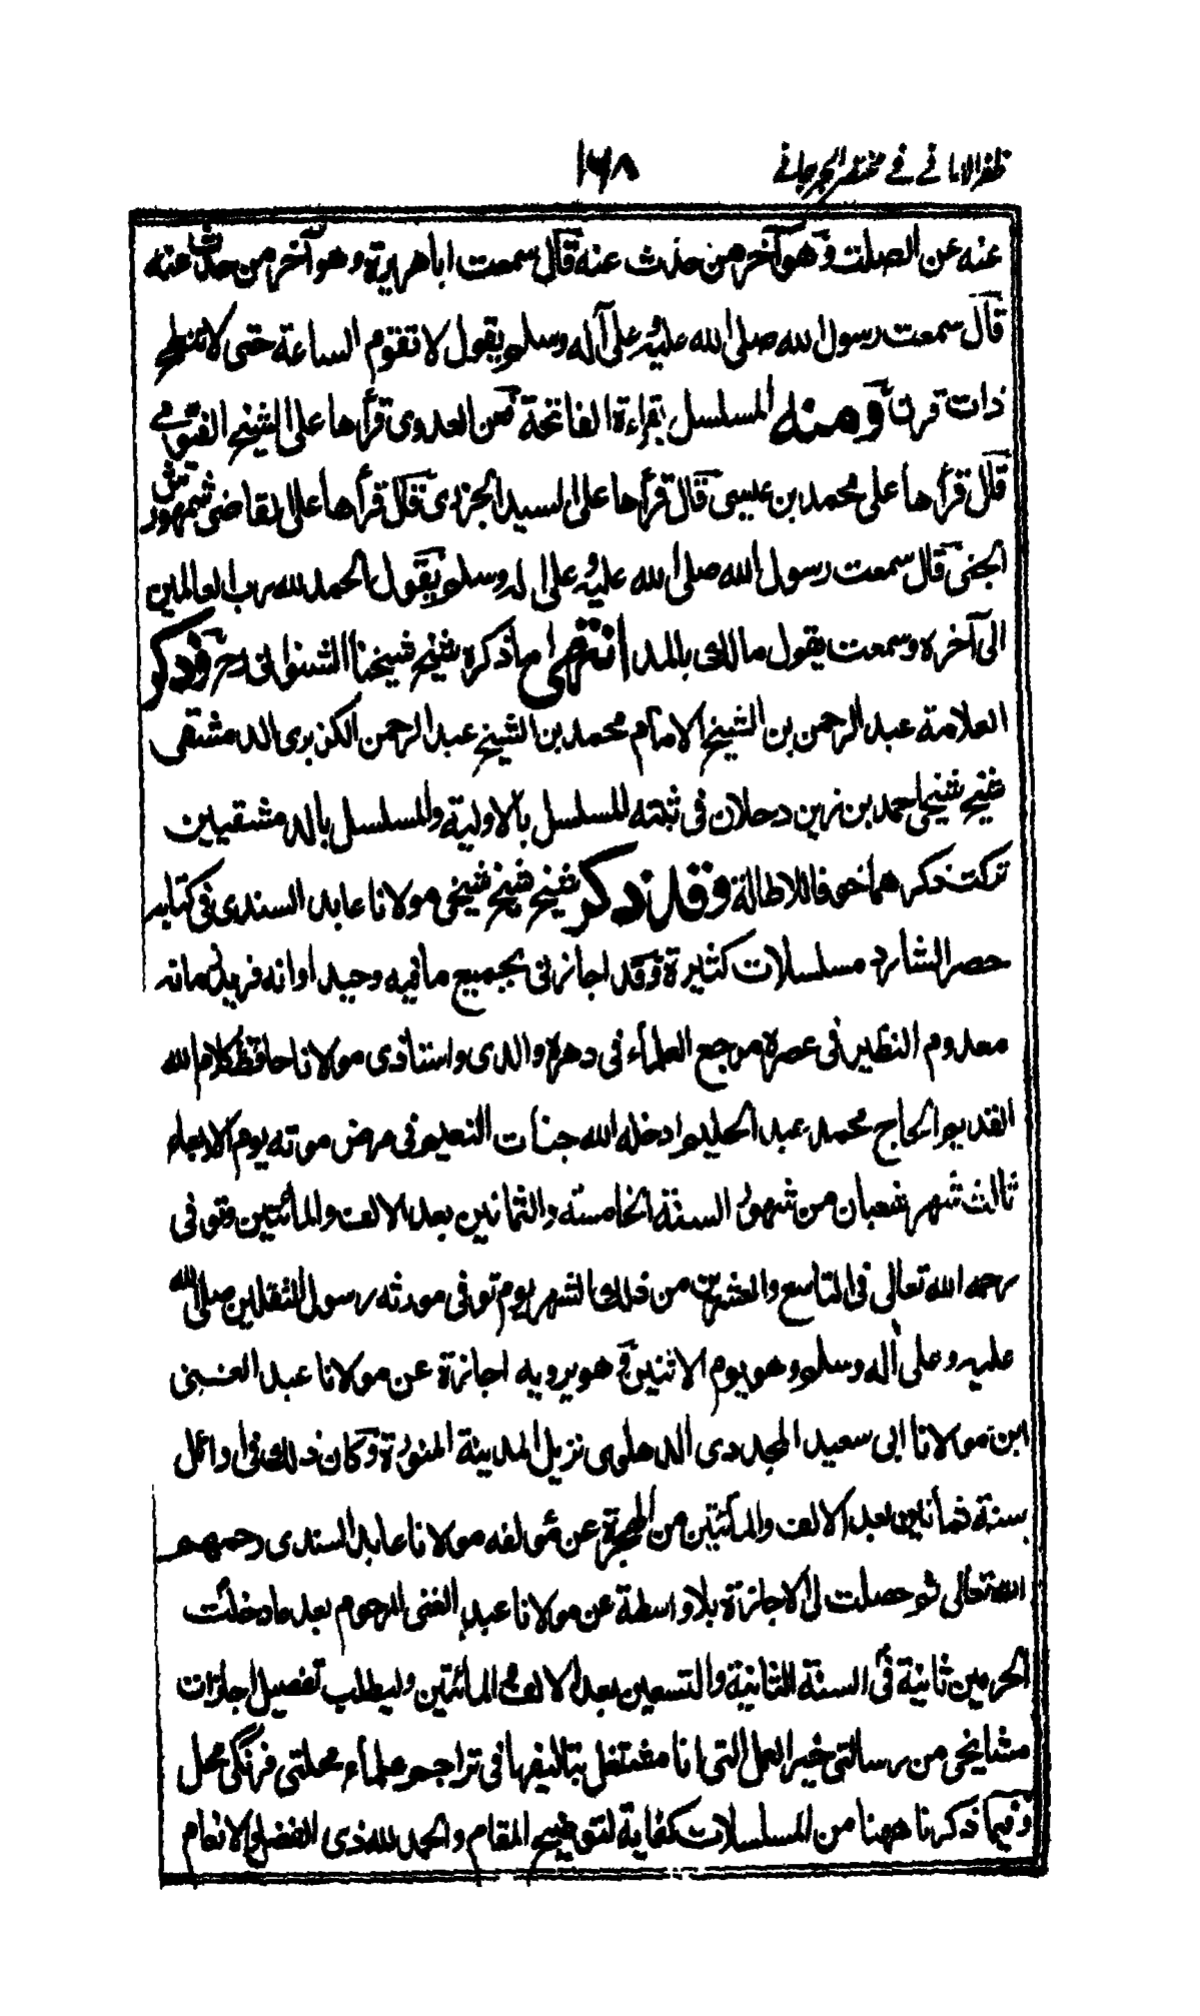 ظفر الامانے فے مختصر الجرجانے
١٦٨
عنه عن الصلت وهو آخر من حدث عنه قال سمعت ابا هريرة وهو آخر من حدث عنه
قال سمعت رسول الله صلى الله عليه وعلى آله وسلم يقول لا تقوم الساعة حتى لا تنطح
ذات قرن ومنه المسلسل بقراءة الفاتحة فمن العدوى قرأها على الشيخ الفيومے
قال قرأها على محمد بن عيسى قال قرأها على السيد الجزرى قال قرأها على القاضى شمهورش
الجنى قال سمعت رسول الله صلى الله عليه وعلى اله وسلم يقول الحمد لله رب العالمين
الى آخره وسمعت يقول مالك بالمد انتهى ما ذكره شيخ شيخنا الشنوانى رح وذكر
العلامة عبد الرحمن بن الشيخ الامام محمد بن الشيخ عبد الرحمن الكزبرى الدمشقى
شيخ شيخى احمد بن زين دحلان فى ثبته المسلسل بالاولية والمسلسل بالدمشقيين
تركت ذكرهما خوفا للاطالة وقد ذكر شيخ شيخ شيخى مولانا عابد السندى فى كتابه
حصر الشارد مسلسلات كثيرة وقد اجازنى بجميع ما فيه وحيد اوانه فريد زمانه
معدوم النظير فى عصره مرجع العلماء فى دهره والدى واستاذى مولانا حافظ كلام الله
القديم الحاج محمد عبد الحليم ادخله الله جنات النعيم فى مرض موته يوم الاربعاء
ثالث شهر شعبان من شهور السنة الخامسة والثمانين بعد الالف والمائتين وتوفى
رحمه الله تعالى فى التاسع والعشرين من ذلك الشهر يوم توفى مورثه رسول الثقلين صلى الله
عليه وعلى آله وسلم وهو يوم الاثنين وهو يرويه اجازة عن مولانا عبد الغنى
ابن مولانا ابى سعيد المجددى الدهلوى نزيل المدينة المنورة وكان ذلك فى اوائل
سنة ثمانين بعد الالف والمائتين من الهجرة عن مؤلفه مولانا عابد السندى رحمهم
الله تعالى ثم حصلت لى الاجازة بلا واسطة عن مولانا عبد الغنى المرحوم بعد ما دخلت
الحرمين ثانية فى السنة الثانية والتسعين بعد الالف والمائتين وليطلب تفصيل اجازات
مشايخى من رسالتى خير العمل التى انا مشتغل بتاليفها فى تراجم علماء محلتى فرنگى محل
وفيما ذكرنا ههنا من المسلسلات كفاية لتوضيح المقام والحمد لله ذى الفضل والانعام